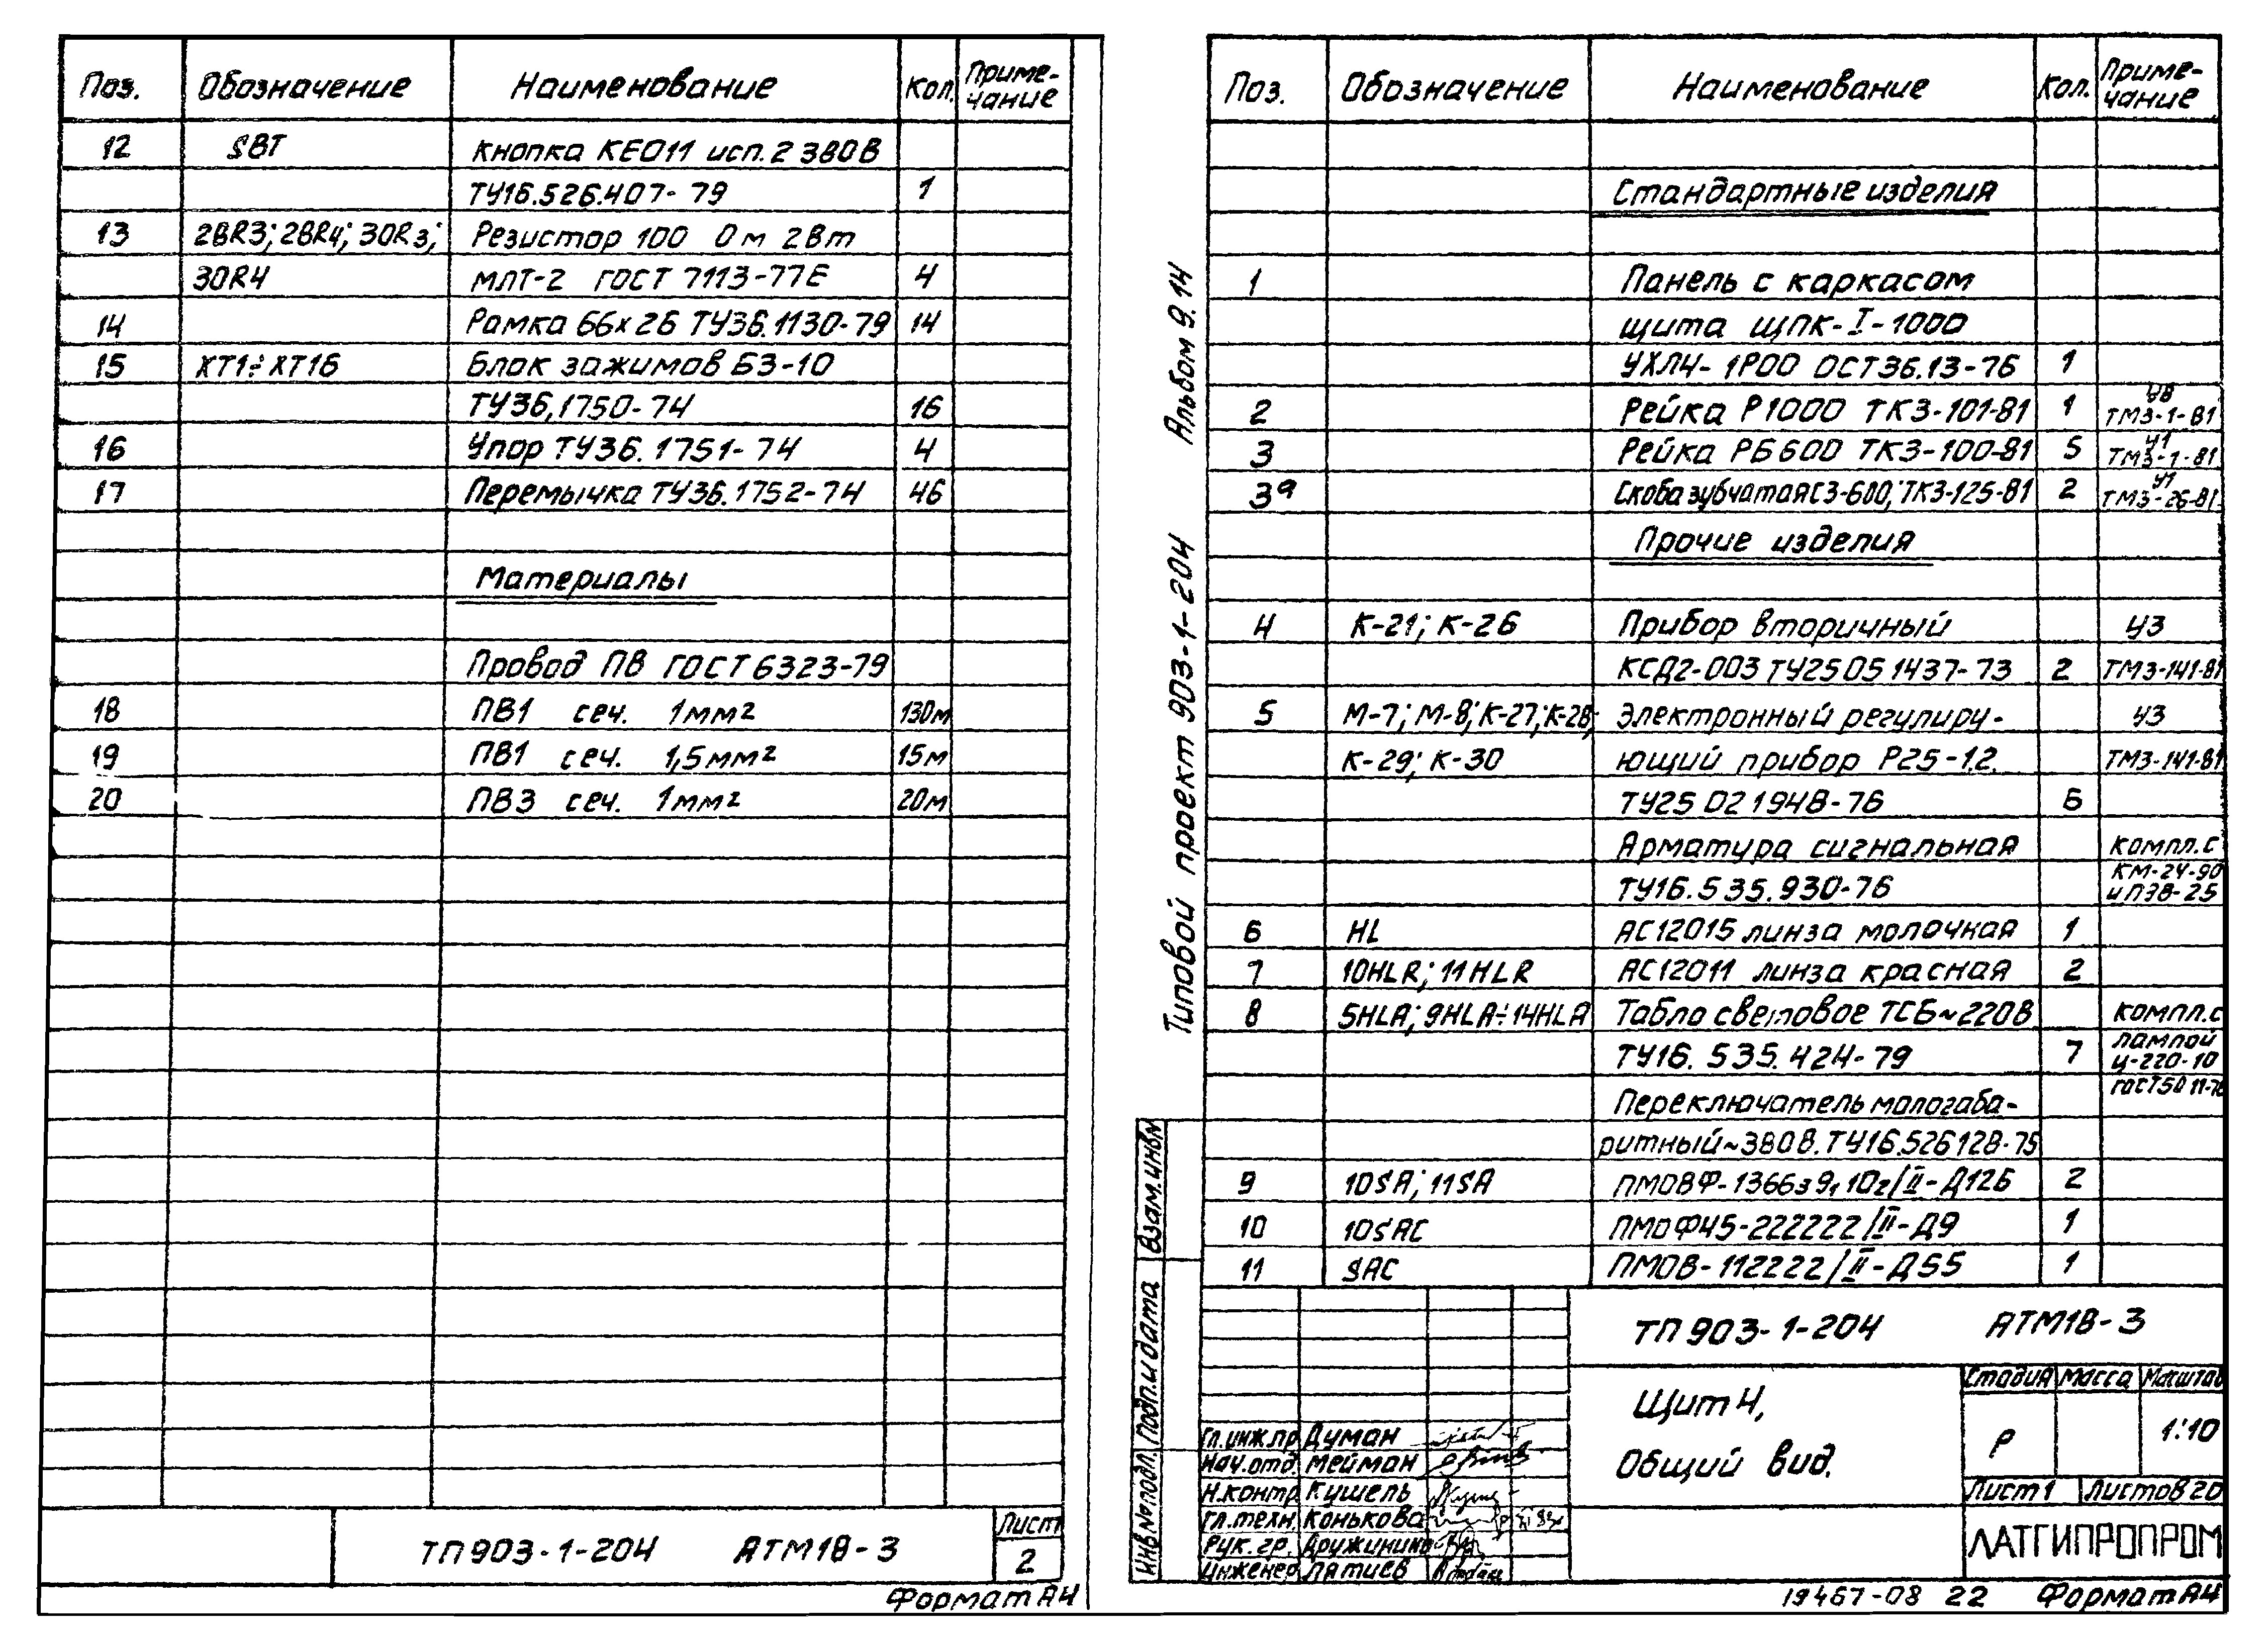 Поз. Обозначение Наименование Кол. Приме-
чание
12 SBT Кнопка КЕ011 исп. 2 380В
ТУ16.526.407-79 1
13 28R3; 28R4; 30R3; Резистор 100 Ом 2Вт
30R4 МЛТ-2 ГОСТ 7113-77Е 4
14 Рамка 66х26 ТУ36.1130-79 14
15 ХТ1÷ХТ16 Блок зажимов БЗ-10
ТУ36,1750-74 16
16 Упор ТУ36.1751-74 4
17 Перемычка ТУ36.1752-74 46
Материалы
Провод ПВ ГОСТ 6323-79
18 ПВ1 сеч. 1мм2 130м
19 ПВ1 сеч. 1,5мм2 15м
20 ПВ3 сеч. 1мм2 20м
ТП903-1-204 АТМ18-3
Лист
2
Формат А4
Альбом 9.14
Типовой проект 903-1-204
Взам.инв№
Подп.и дата
Инв.№подл.
Поз. Обозначение Наименование Кол. Приме-
чание
Стандартные изделия
1 Панель с каркасом
щита ЩПК-I-1000
УХЛ4-1Р00 ОСТ36.13-76 1
2 Рейка Р1000 ТК3-101-81 1 У8
ТМ3-1-81
3 Рейка РБ600 ТК3-100-81 5 У1
ТМ3-1-81
3а Скоба зубчатая С3-600; ТК3-125-81 2 У1
ТМ3-26-81
Прочие изделия
4 К-21; К-26 Прибор вторичный У3
КСД2-003 ТУ25 05 1437-73 2 ТМ3-141-81
5 М-7; М-8; К-27; К-28; Электронный регулиру- У3
К-29; К-30 ющий прибор Р25-1.2. ТМ3-141-81
ТУ25 02 1948-76 6
Арматура сигнальная компл.с
ТУ16.535.930-76 КМ-24-90
и ПЭВ-25
6 HL АС12015 линза молочная 1
7 10HLR; 11HLR АС12011 линза красная 2
8 5HLA; 9HLA÷14HLA Табло световое ТСБ~220В компл.с
ТУ16.535.424-79 7 лампой
Ц-220-10
ГОСТ50 11-76
Переключатель малогаба-
ритный~380В. ТУ16.526128-75
9 10SA; 11SA ПМОВФ-1366з9, 10г/II-Д126 2
10 10SAC ПМОФ45-222222/II-Д9 1
11 SAC ПМОВ-112222/II-Д55 1
ТП903-1-204 АТМ18-3
Щит 4,
Общий вид.
Стадия Масса Масштаб
Р 1:10
Лист 1 Листов 20
ЛАТГИПРОПРОМ
Гл.инж.пр Думан
Нач.отд Мейман
Н.контр Кушель
Гл.техн. Конькова
Рук.гр. Дружинина
Инженер Лятиев
19467-08 22 Формат А4